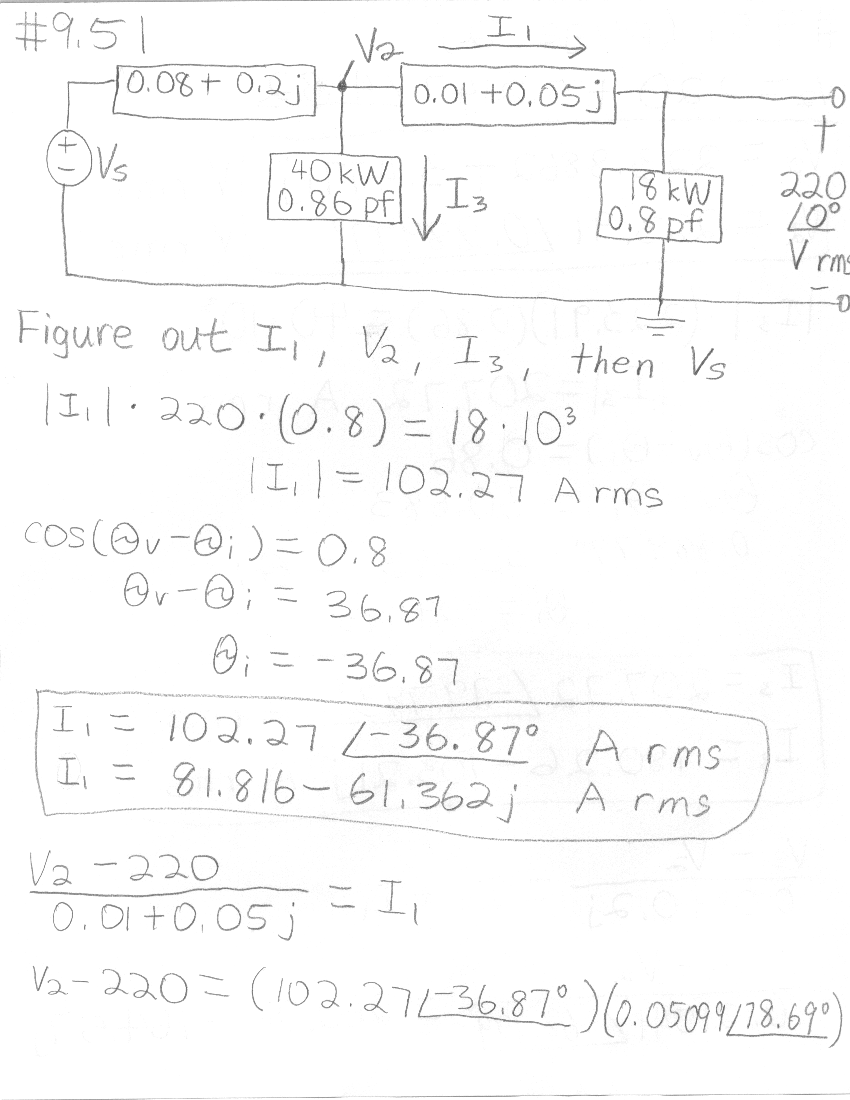 #9.51
I₁
V₂
0.08 + 0.2j
0.01 + 0.05j
+
Vs
−
40 kW
0.86 pf
I₃
18 kW
0.8 pf
+
220
∠0°
V rms
−
Figure out I₁, V₂, I₃, then Vs
|I₁| · 220 · (0.8) = 18 · 10³
|I₁| = 102.27 A rms
cos(θv − θi) = 0.8
θv − θi = 36.87
θi = −36.87
I₁ = 102.27 ∠−36.87° A rms
I₁ = 81.816 − 61.362j A rms
V₂ − 220
0.01 + 0.05j
= I₁
V₂ − 220 = (102.27∠−36.87°)(0.05099∠78.69°)